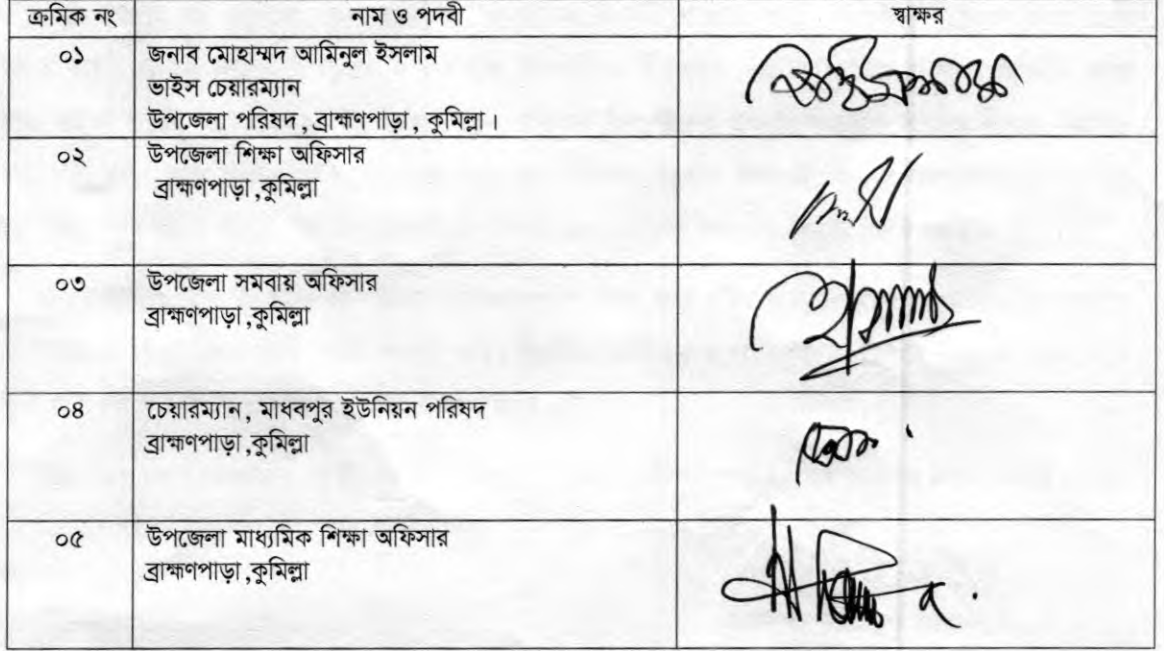 ক্রমিক নং নাম ও পদবী স্বাক্ষর
০১ জনাব মোহাম্মদ আমিনুল ইসলাম
ভাইস চেয়ারম্যান
উপজেলা পরিষদ, ব্রাহ্মণপাড়া, কুমিল্লা।
০২ উপজেলা শিক্ষা অফিসার
ব্রাহ্মণপাড়া ,কুমিল্লা
০৩ উপজেলা সমবায় অফিসার
ব্রাহ্মণপাড়া ,কুমিল্লা
০৪ চেয়ারম্যান, মাধবপুর ইউনিয়ন পরিষদ
ব্রাহ্মণপাড়া ,কুমিল্লা
০৫ উপজেলা মাধ্যমিক শিক্ষা অফিসার
ব্রাহ্মণপাড়া ,কুমিল্লা